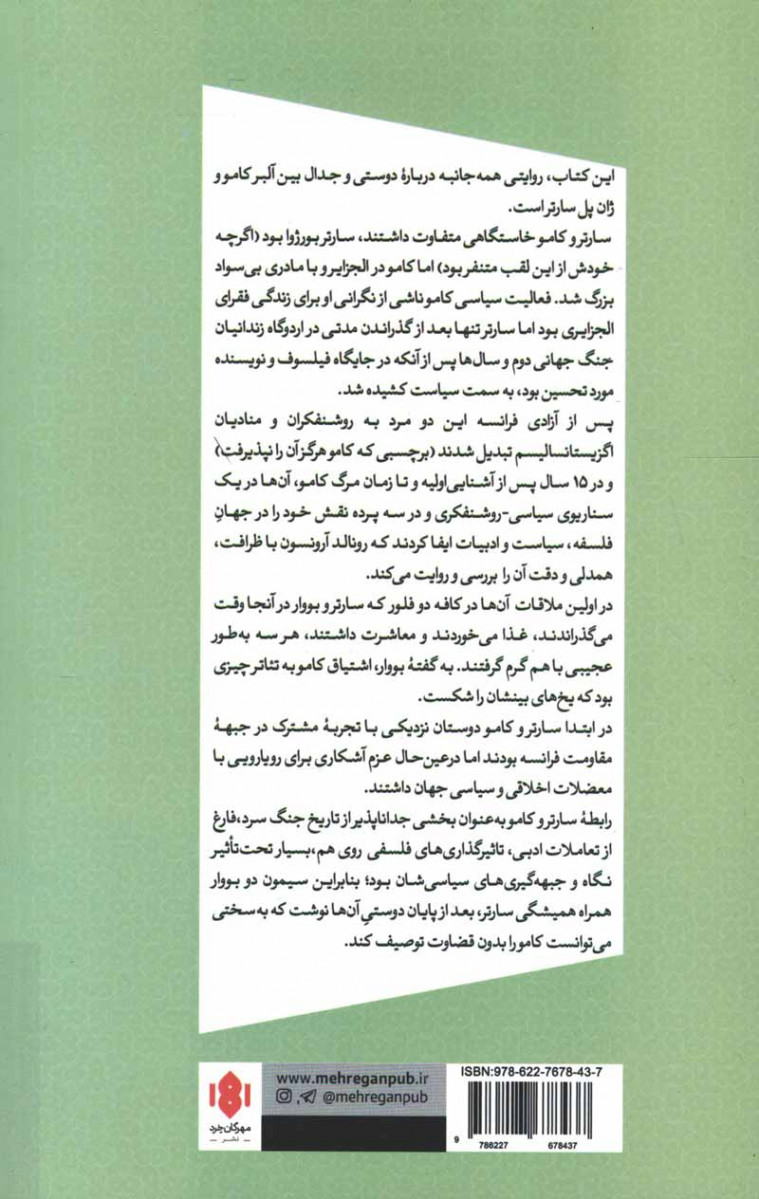 این کتاب، روایتی همه‌جانبه دربارهٔ دوستی و جدال بین آلبر کامو و
ژان پل سارتر است.
سارتر و کامو خاستگاهی متفاوت داشتند، سارتر بورژوا بود (اگرچه
خودش از این لقب متنفر بود) اما کامو در الجزایر و با مادری بی‌سواد
بزرگ شد. فعالیت سیاسی کامو ناشی از نگرانی او برای زندگی فقرای
الجزایری بود اما سارتر تنها بعد از گذراندن مدتی در اردوگاه زندانیان
جنگ جهانی دوم و سال‌ها پس از آنکه در جایگاه فیلسوف و نویسنده
مورد تحسین بود، به سمت سیاست کشیده شد.
پس از آزادی فرانسه این دو مرد به روشنفکران و منادیان
اگزیستانسالیسم تبدیل شدند (برچسبی که کامو هرگز آن را نپذیرفت)
و در ۱۵ سال پس از آشنایی اولیه و تا زمان مرگ کامو، آن‌ها در یک
سناریوی سیاسی-روشنفکری و در سه پرده نقش خود را در جهانِ
فلسفه، سیاست و ادبیات ایفا کردند که رونالد آرونسون با ظرافت،
همدلی و دقت آن را بررسی و روایت می‌کند.
در اولین ملاقات آن‌ها در کافه دو فلور که سارتر و بووار در آنجا وقت
می‌گذراندند، غذا می‌خوردند و معاشرت داشتند، هر سه به‌طور
عجیبی با هم گرم گرفتند. به گفتهٔ بووار، اشتیاق کامو به تئاتر چیزی
بود که یخ‌های بینشان را شکست.
در ابتدا سارتر و کامو دوستان نزدیکی با تجربهٔ مشترک در جبههٔ
مقاومت فرانسه بودند اما درعین‌حال عزم آشکاری برای رویارویی با
معضلات اخلاقی و سیاسی جهان داشتند.
رابطهٔ سارتر و کامو به‌عنوان بخشی جداناپذیر از تاریخ جنگ سرد، فارغ
از تعاملات ادبی، تاثیرگذاری‌های فلسفی روی هم، بسیار تحت‌تأثیر
نگاه و جبهه‌گیری‌های سیاسی‌شان بود؛ بنابراین سیمون دو بووار
همراه همیشگی سارتر، بعد از پایان دوستیِ آن‌ها نوشت که به‌سختی
می‌توانست کامو را بدون قضاوت توصیف کند.
ISBN:978-622-7678-43-7
www.mehreganpub.ir
@mehreganpub
مهرگان خرد
نشر
9 786227 678437